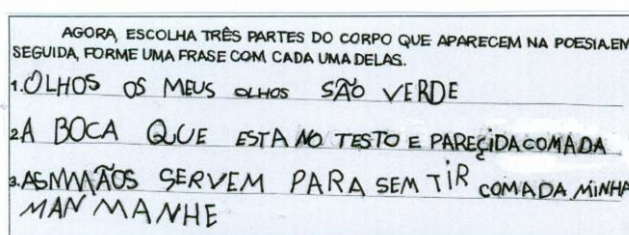 AGORA, ESCOLHA TRÊS PARTES DO CORPO QUE APARECEM NA POESIA.EM
SEGUIDA, FORME UMA FRASE COM CADA UMA DELAS.
1. OLHOS OS MEUS OLHOS SÃO VERDE
2. A BOCA QUE ESTA NO TESTO E PAREÇIDA COMADA
3. AS MMÃOS SERVEM PARA SEM TIR COMADA MINHA
MAN MANHE